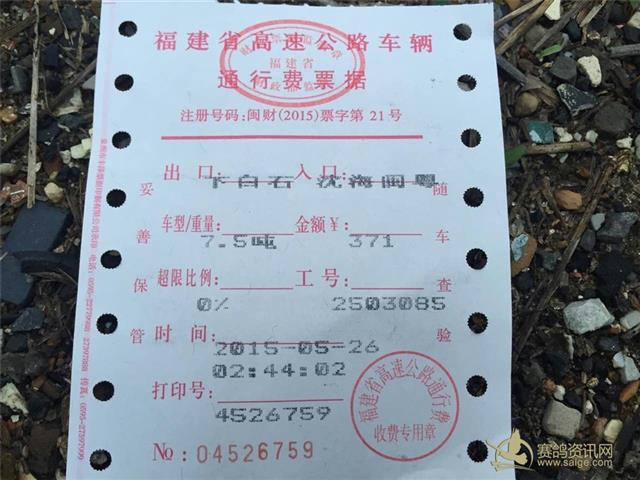 福建省高速公路车辆
通行费票据
福建省
注册号码:闽财(2015)票字第21号
出口: 入口:
下白石 沈海闽粤
车型/重量: 金额¥:
7.5吨 371
超限比例: 工号:
0% 2503085
时间:
2015-05-26
02:44:02
打印号:
4526759
№: 04526759
妥善保管
随车查验
福建省高速公路通行费
收费专用章
赛鸽资讯网
www.saige.com